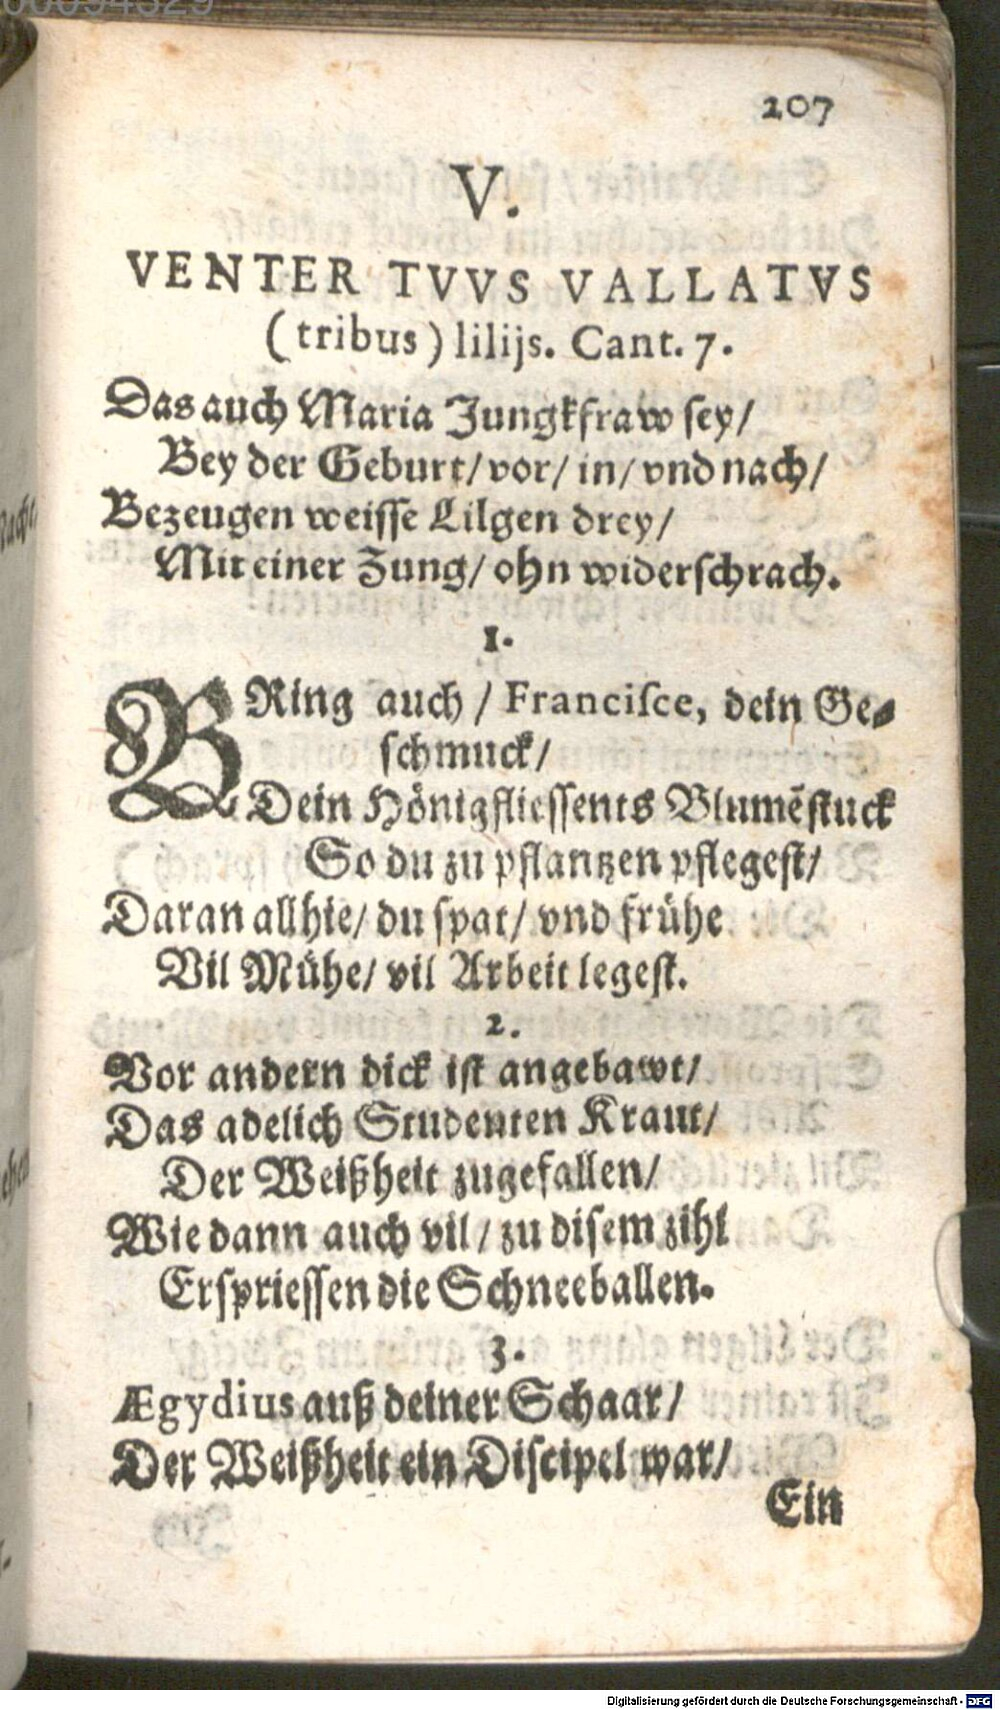 207
V.
VENTER TVVS VALLATVS
(tribus) lilijs. Cant. 7.
Das auch Maria Jungkfraw sey/
Bey der Geburt/ vor/ in/ vnd nach/
Bezeugen weisse Lilgen drey/
Mit einer Zung/ ohn widerschrach.
1.
BRing auch / Francisce, dein Ge-
schmuck/
Dein Hönigfliessents Blumẽstuck
So du zu pflantzen pflegest/
Daran allhie/ du spat/ vnd frühe
Vil Mühe/ vil Arbeit legest.
2.
Vor andern dick ist angebawt/
Das adelich Studenten Kraut/
Der Weißheit zugefallen/
Wie dann auch vil / zu disem zihl
Erspriessen die Schneeballen.
3.
Ægydius auß deiner Schaar/
Der Weißheit ein Discipel war/
Ein
Digitalisierung gefördert durch die Deutsche Forschungsgemeinschaft - DFG